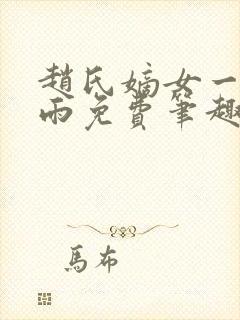 趙氏嫡女一
雨免費筆趣
馬布